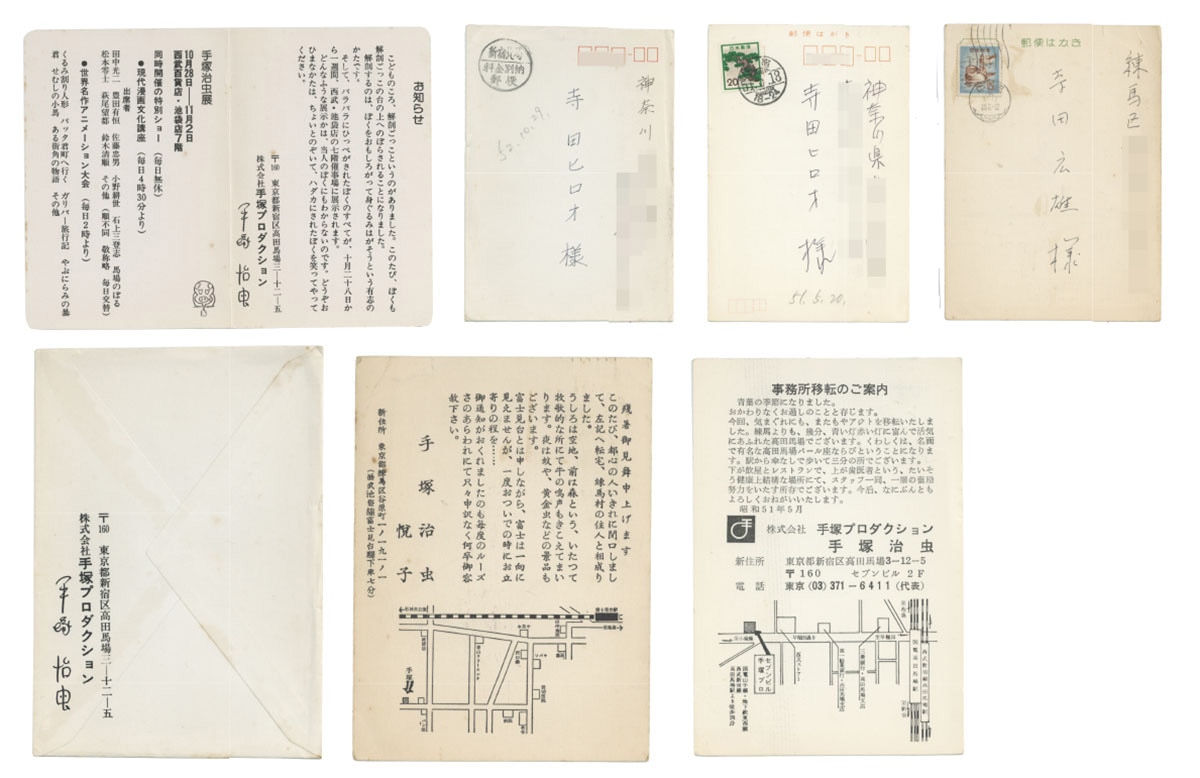 お知らせ
こどものころ、解剖ごっこというのがありました。このたび、ぼくも
解剖ごっこの台の上へのぼらされることになりました。
解剖するのは、ぼくをおもしろがって身ぐるみはがそうという有志の
かたです。
そして、バラバラにひっぺがされたぼくのすべてが、十月二十八日か
ら一週間、西武・池袋店の七階催事場に展示されます。
どんなふうな展示かは、当人のぼくにもわからないのです。どうぞお
ひまなかたは、ちょいとのぞいて、ハダカにされたぼくを笑ってやって
ください。
〒160 東京都新宿区高田馬場三―十二―五
株式会社手塚プロダクション
手塚治虫
手塚治虫展
10月28日―11月2日
西武百貨店・池袋店7階
同時開催の特別ショー(毎日無休)
●現代漫画文化講座(毎日4時30分より)
出席者
田中光二 豊田有恒 佐藤忠男 小野耕世 石上三登志 馬場のぼる
松本零士 萩尾望都 鈴木清順 その他(順不同 敬称略 毎日交替)
●世界名作アニメーション大会(毎日2時より)
くるみ割り人形 バッタ君町へ行く ガリバー旅行記 やぶにらみの暴
君 せむしの小馬 ある街角の物語 その他
料金別納
郵便
神奈川
寺田ヒロオ 様
52.10.29.
郵便はがき
日本郵便
20
神奈川県
寺田ヒロオ 様
51.5.20.
郵便はがき
練馬区
寺田広雄 様
〒160 東京都新宿区高田馬場三―十二―五
株式会社手塚プロダクション
手塚治虫
残暑御見舞申上げます
このたび、都心の人いきれに閉口しまし
て、左記へ転宅、練馬村の住人と相成り
ました。
うしろは空地、前は森という、いたって
牧歌的な所にて牛の鳴声もきこえてまい
ります。夜は蚊や、黄金虫などの景品も
ございます。
富士見台とは申しながら、富士は一向に
見えませんが、一度おついでの時にお立
寄りの程を……
御通知がおくれましたのも毎度のルーズ
さのあらわれにて只々申訳なく何卒御容
赦下さい。
手塚治虫
悦子
新住所 東京都練馬区谷原町一ノ一九一ノ一
(西武池袋線富士見台駅下車七分)
手塚
事務所移転のご案内
青葉の季節になりました。
おかわりなくお過しのことと存じます。
今回、気まぐれにも、またもやアジトを移転いたしま
した。練馬よりも、幾分、青い灯赤い灯に富んで活気
にあふれた高田馬場でございます。くわしくは、名画
で有名な高田馬場パール座ならびということになりま
す。駅から傘なしで歩いて三分の所でございます。
下が飲屋とレストランで、上が歯医者という、たいそ
う健康上結構な場所にて、スタッフ一同、一層の奮励
努力をいたす所存でございます。今后、なにぶんとも
よろしくおねがいいたします。
昭和51年5月
株式会社 手塚プロダクション
手塚治虫
新住所 東京都新宿区高田馬場3-12-5
〒160 セブンビル 2F
電話 東京(03)371-6411(代表)
セブンビル
手塚プロ